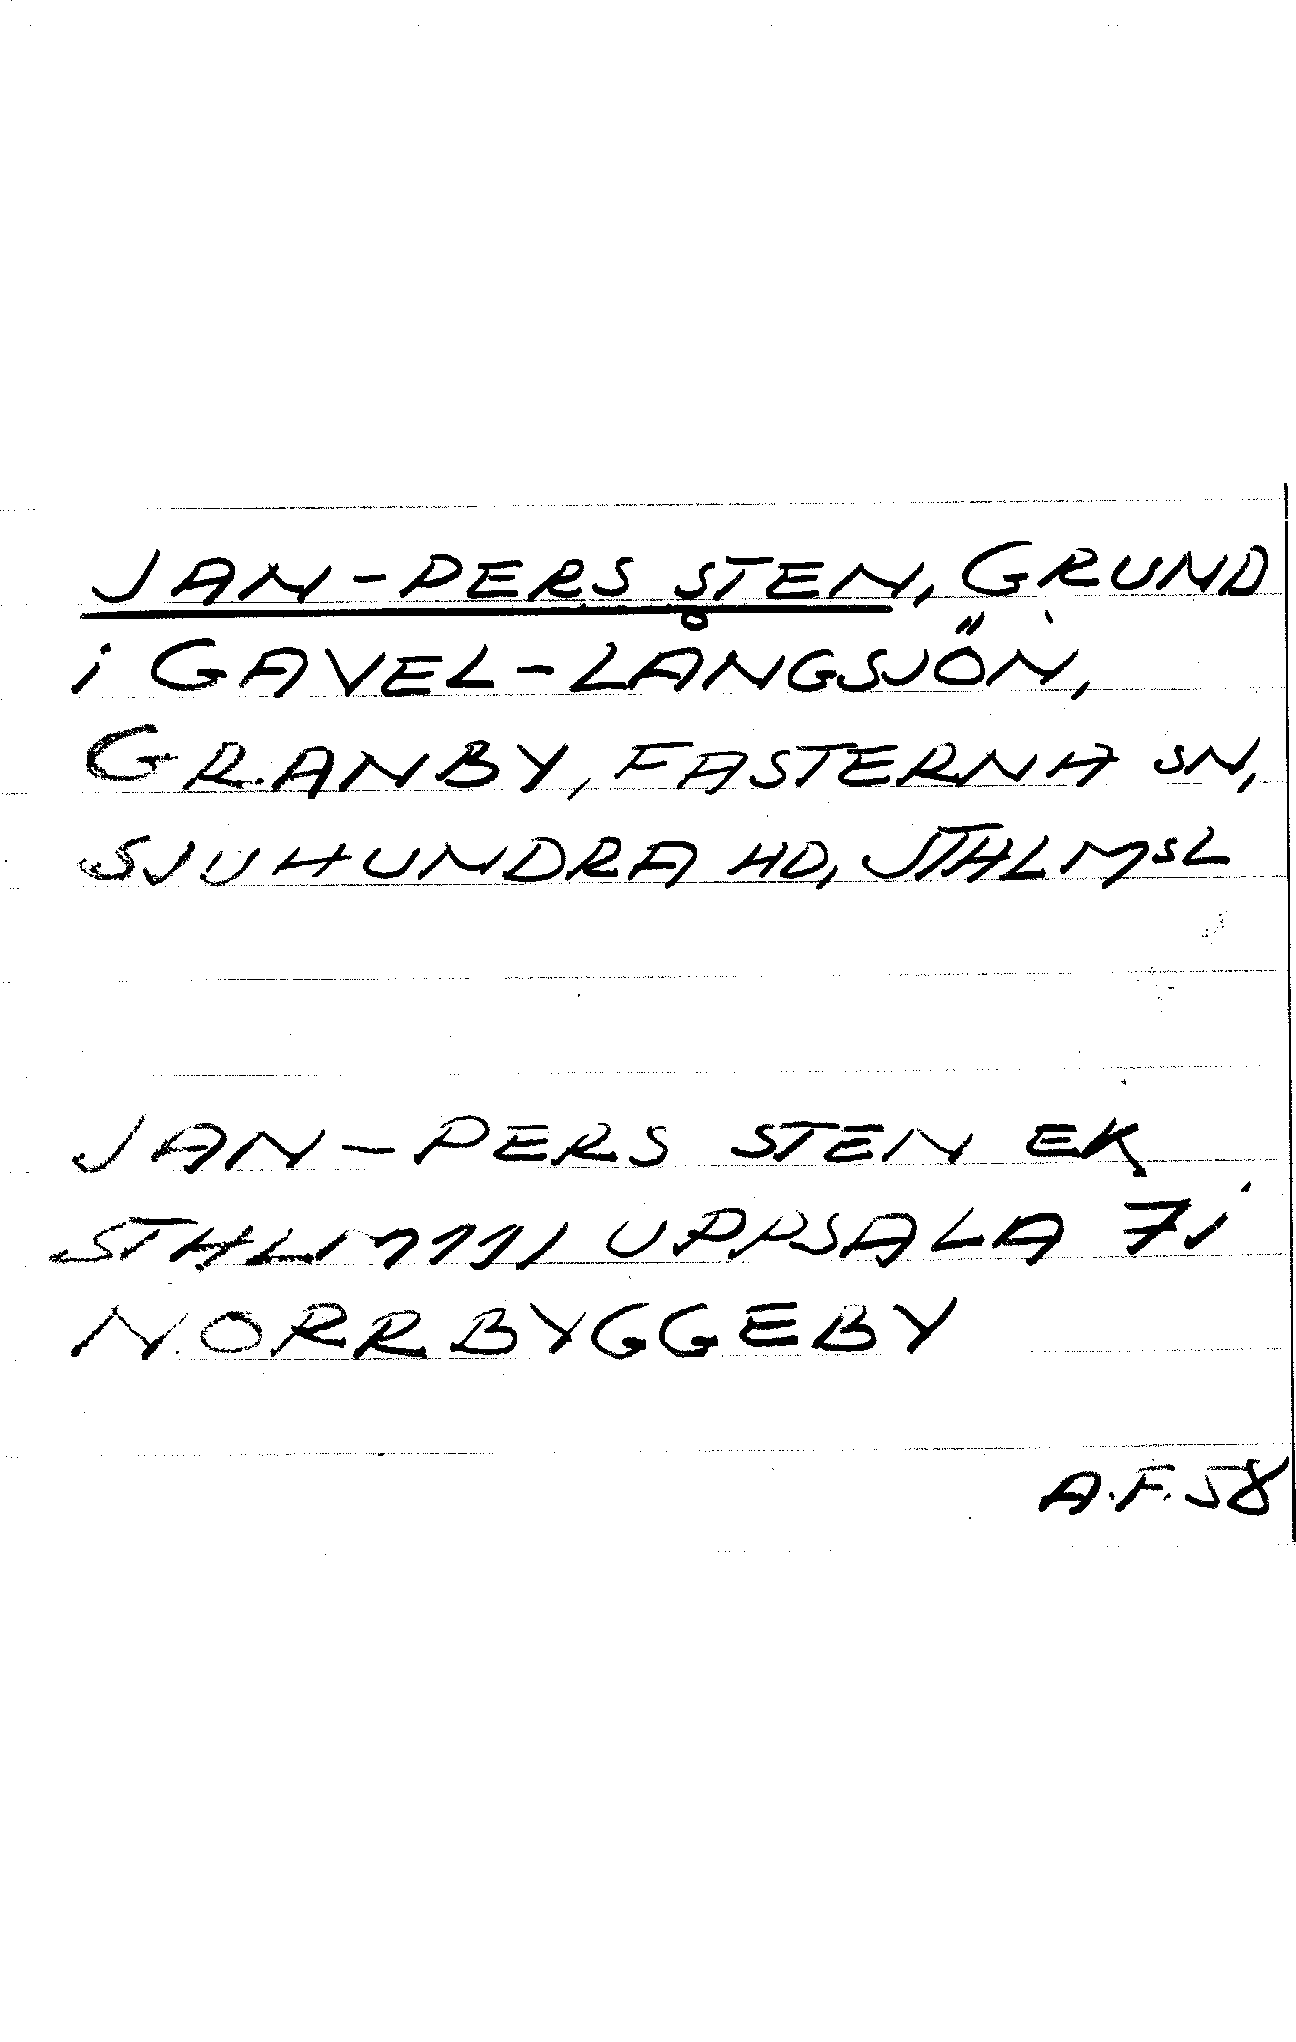 JAN-PERS STEN, GRUND
i GAVEL-LÅNGSJÖN,
GRANBY, FASTERNA SN,
SJUHUNDRA HD, STHLMSL
JAN-PERS STEN EK
STHLM 111 UPPSALA 7i
NORRBYGGEBY
A.F. 58